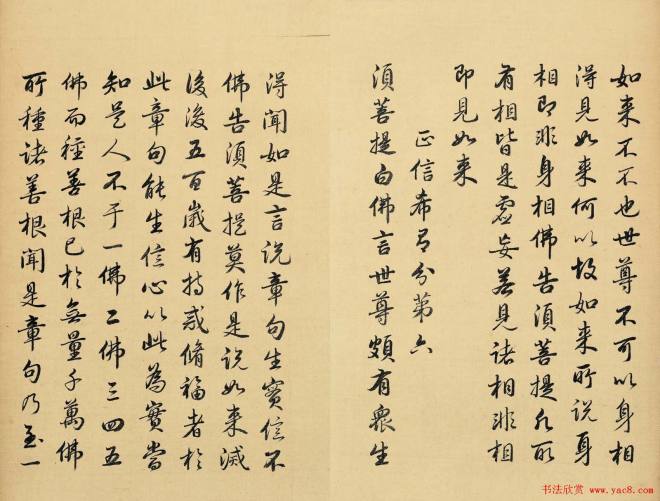 如来不不也世尊不可以身相
得見如来何以故如来所說身
相即非身相佛告須菩提凡所
有相皆是虛妄若見諸相非相
即見如来
正信希有分第六
須菩提白佛言世尊頗有衆生
得聞如是言說章句生實信不
佛告須菩提莫作是說如来滅
後後五百歲有持戒脩福者於
此章句能生信心以此為實當
知是人不于一佛二佛三四五
佛而種善根已於無量千萬佛
所種諸善根聞是章句乃至一
书法欣赏
www.yac8.com